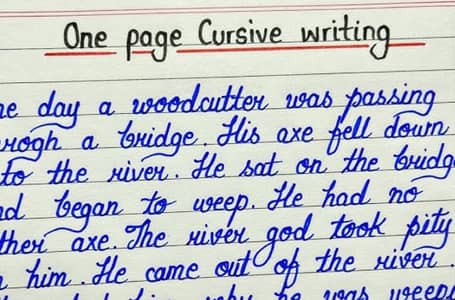 One page Cursive writing
ne day a woodcutter was passing
rogh a bridge. His axe fell down
to the river. He sat on the bridg
nd began to weep. He had no
ther axe. The river god took pity
him. He came out of the river.
why he was weep